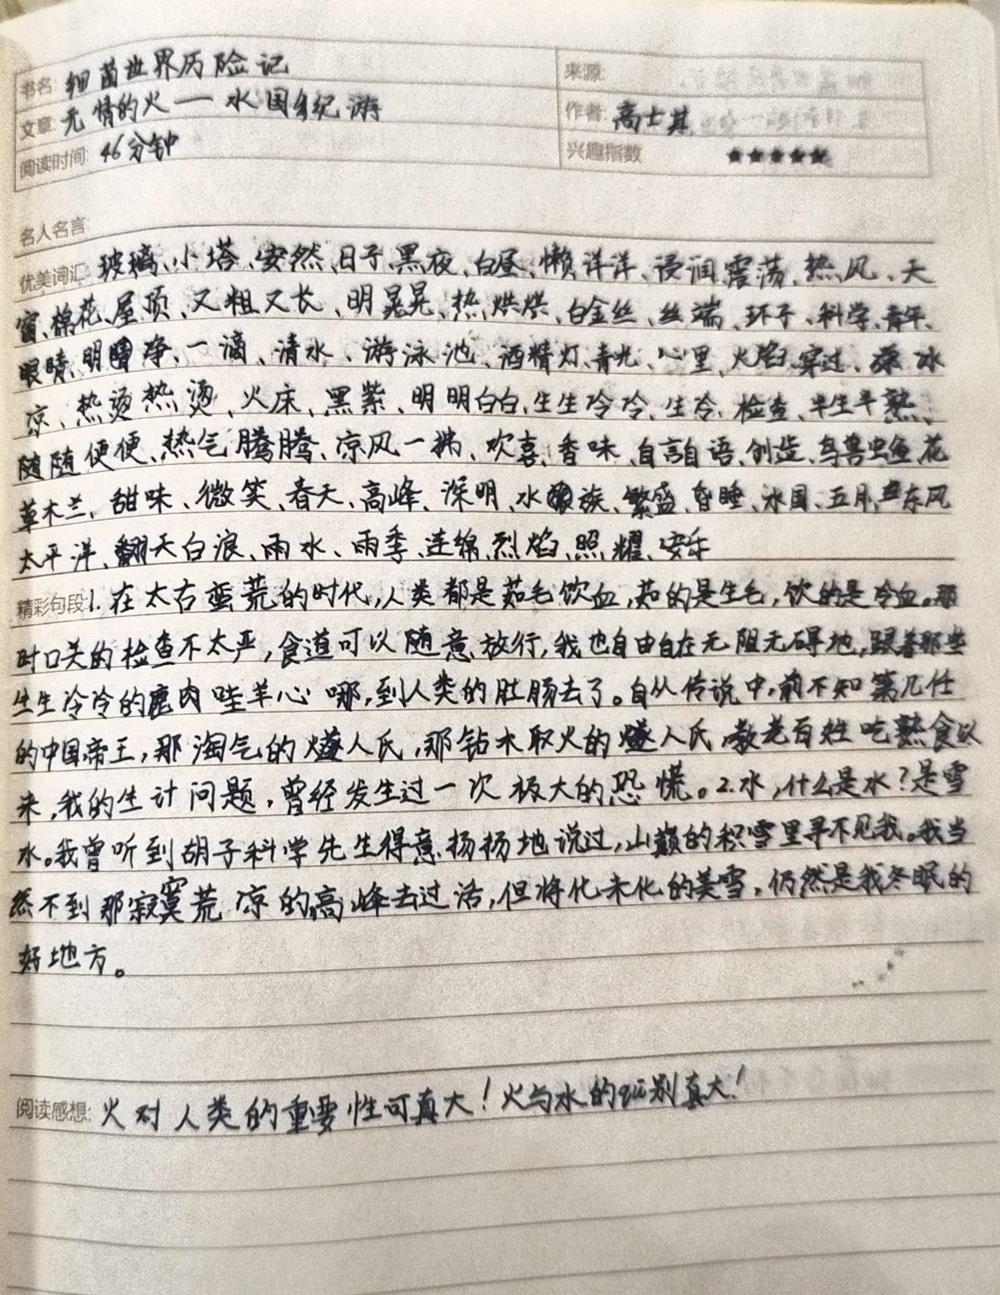 书名: 细菌世界历险记
来源:
文章: 无情的火——水国纪游
作者: 高士其
阅读时间: 46分钟
兴趣指数 ★★★★★
名人名言:
优美词汇: 玻璃、小塔、安然、日子、黑夜、白昼、懒洋洋、浸润、震荡、热风、天
窗、棉花、屋顶、又粗又长、明晃晃、热烘烘、白金丝、丝端、环子、科学、青年、
眼睛、明净、一滴、清水、游泳池、酒精灯、青光、心里、火焰、穿过、冰
凉、热烫热烫、火床、黑紫、明明白白、生生冷冷、生冷、检查、半生半熟、
随随便便、热气腾腾、凉风一拂、欢喜、香味、自言自语、创造、鸟兽虫鱼、花
草木兰、甜味、微笑、春天、高峰、深明、水族、繁盛、昏睡、冰国、五月、东风
太平洋、翻天白浪、雨水、雨季、连绵、烈焰、照耀、安乐
精彩句段: 1.在太古蛮荒的时代,人类都是茹毛饮血,茹的是生毛,饮的是冷血。那
时口关的检查不太严,食道可以随意放行,我也自由自在无阻无碍地,跟着那些
生生冷冷的鹿肉哇羊心哪,到人类的肚肠去了。自从传说中,前不知第几任
的中国帝王,那淘气的燧人氏,那钻木取火的燧人氏,教老百姓吃熟食以
来,我的生计问题,曾经发生过一次极大的恐慌。2.水,什么是水?是雪
水。我曾听到胡子科学先生得意扬扬地说过,山巅的积雪里寻不见我。我当
然不到那寂寞荒凉的高峰去过活,但将化未化的美雪,仍然是我冬眠的
好地方。
阅读感想: 火对人类的重要性可真大!火与水的区别真大!